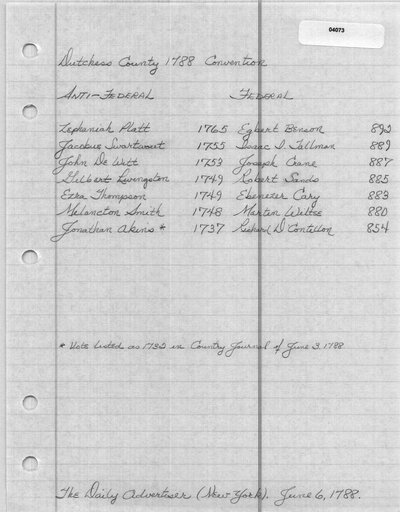 04073
Dutchess County 1788 Convention
Anti-Federal Federal
Zephaniah Platt 1765 Egbert Benson 892
Jacobus Swartwout 1755 Isaac I. Tallman 889
John De Witt 1753 Joseph Crane 887
Gilbert Livingston 1749 Robert Sands 885
Ezra Thompson 1749 Ebenezer Cary 883
Melancton Smith 1748 Martin Wiltse 880
Jonathan Akins * 1737 D Cantillon 854
* Vote listed as 1732 in Country Journal of June 3. 1788
The Daily Advertiser (New York). June 6, 1788.